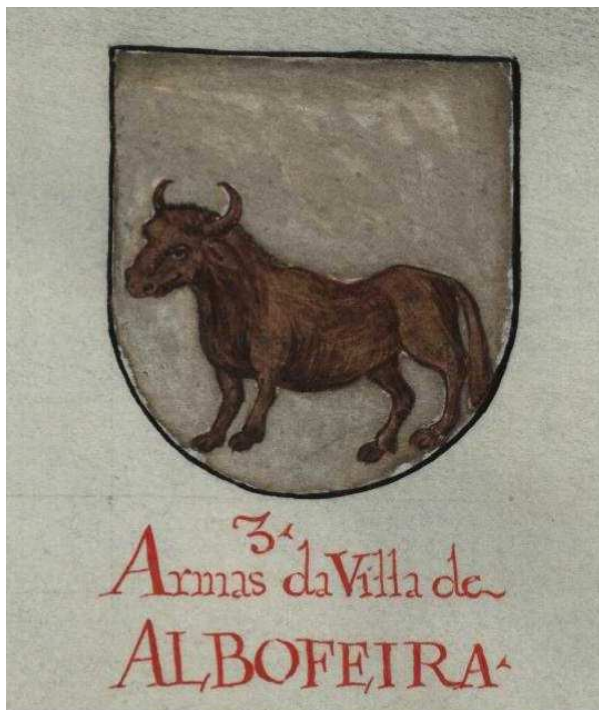 3.
Armas da Villa de
ALBOFEIRA.